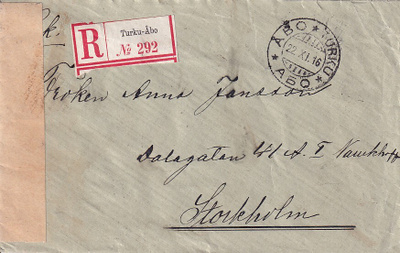 Rek.
R
Turku-Åbo
№ 292
ÅBO * TURKU
22.XI.16
* ÅBO *
Fröken Anna Jansson
Dalagatan 41 A. I
Stockholm